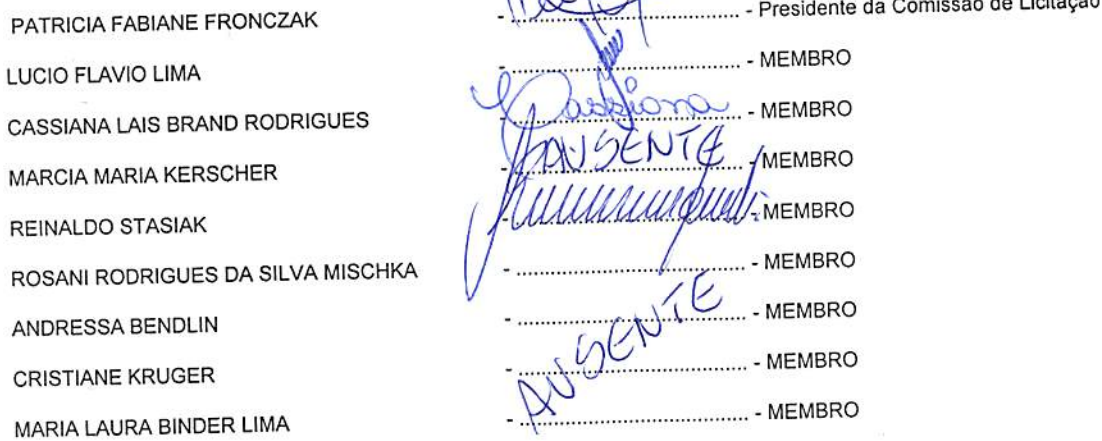 PATRICIA FABIANE FRONCZAK - ........................ - Presidente da Comissão de Licitação
LUCIO FLAVIO LIMA - ........................ - MEMBRO
CASSIANA LAIS BRAND RODRIGUES - Cassiona ........................ - MEMBRO
MARCIA MARIA KERSCHER - AUSENTE ........................ - MEMBRO
REINALDO STASIAK - ........................ - MEMBRO
ROSANI RODRIGUES DA SILVA MISCHKA - ........................ - MEMBRO
ANDRESSA BENDLIN - ........................ - MEMBRO
AUSENTE
CRISTIANE KRUGER - ........................ - MEMBRO
MARIA LAURA BINDER LIMA - ........................ - MEMBRO